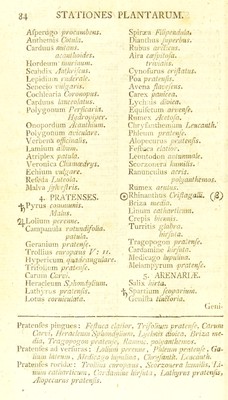 84 STATIONES PLANTARUM.
Asperugo procumbens.
Anthemis Cotula.
Carduus nutans.
acanthoides.
Hordeum murinum.
Scandix Anthriscus.
Lepidium ruderale.
Senecio vulgaris.
Cochlearia Coronopus.
Carduus lanceolatus.
Polygonum Persicaria.
Hydropiper.
Onopordum Acanthium.
Polygonum aviculare.
Verbena officinalis.
Lamium album.
Atriplex patula.
Veronica Chamædrys.
Echium vulgare.
Reseda Luteola.
Malva sylvestris.
4. PRATENSES.
Pyrus communis.
Malus.
Lolium perenne.
Campanula rotundifolia.
patula.
Geranium pratense.
Trollius europæus
Hypericum quadrangulare.
Trifolium pratense.
Carum Carvi.
Heracleum Sphondylium.
Lathyrus pratensis.
Lotus corniculata.
Spiræa Filipendula.
Dianthus superbus.
Rubus arcticus.
Aira cæspitosa.
Cynosurus cristatus.
Poa pratensis.
Avena flavescens.
Carex panicea.
Lychnis dioica.
Equisetum arvense.
Rumex Acetosa.
Chrysanthemum Leucanth.
Phleum pratense.
Alopecurus pratensis.
Festuca elatior.
Leontodon autumnale.
Scorzonera humilis.
Ranunculus acris.
polyanthemos.
Rumex acutus.
Rhinantus Cristagalli.
Briza media.
Linum catharticum.
Crepis biennis.
Turritis glabra.
hirsuta.
Tragopogon pratense.
Cardamine hirsuta.
Medicago lupulina.
Melampyrum pratense.
5. ARENARIÆ.
Salix
Spartium scoparium.
Genista tinctoria.
Geni-
Pratenses pingues: Festuca elatior, Trifolium pratense, Carum
Carvi, Heracleum Sphondylium, Lychnis dioica, Briza me-
dia, Tragopogon pratense, Ranunc. polyanthemos.
Pratenses ad versuras: Lolium perenne, Phleum pratense, Ga-
lium luteum, Medicago lupulina, Chrysanth. Leucanth.
Pratenses roridæ: Trollius europæus, Scorzonera humilis, Li-
num catharticum, Cardamine hirsuta, Lathyrus pratensis,
Alopecurus pratensis.